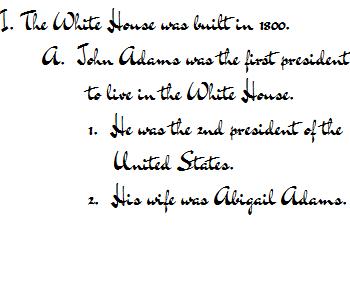 I. The White House was built in 1800.
A. John Adams was the first president
to live in the White House.
1. He was the 2nd president of the
United States.
2. His wife was Abigail Adams.